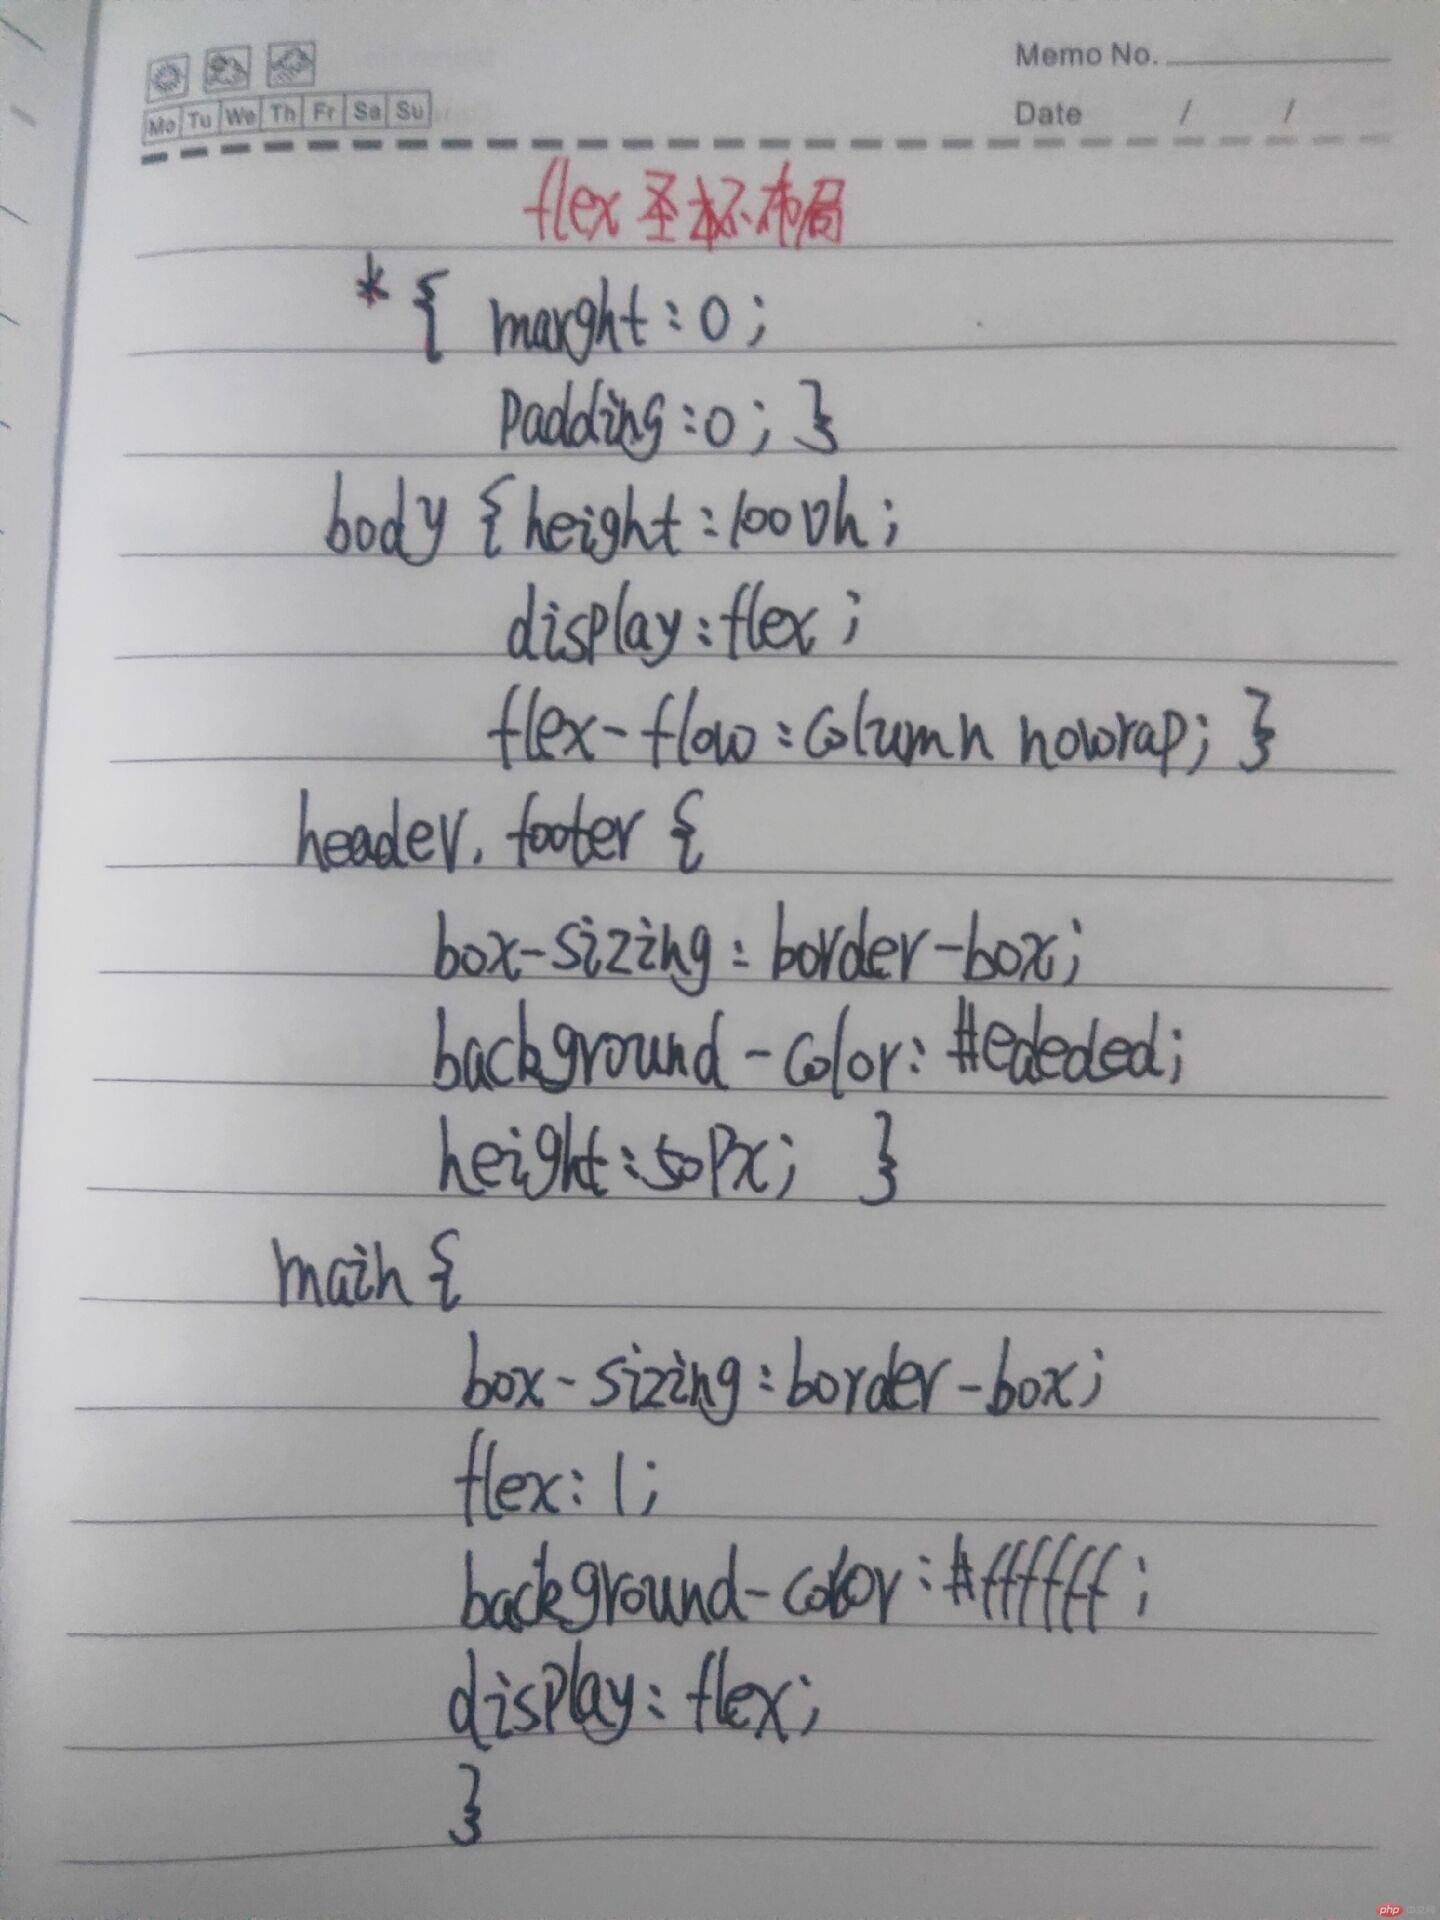 Memo No.
Mo Tu We Th Fr Sa Su
Date / /
flex圣杯布局
*{ marght:0;
padding:0; }
body {height:100vh;
display:flex;
flex-flow:column nowrap; }
header, footer {
box-sizing:border-box;
background-color:#ededed;
height:50px; }
main {
box-sizing:border-box;
flex:1;
background-color:#ffffff;
display:flex;
}
php中文网